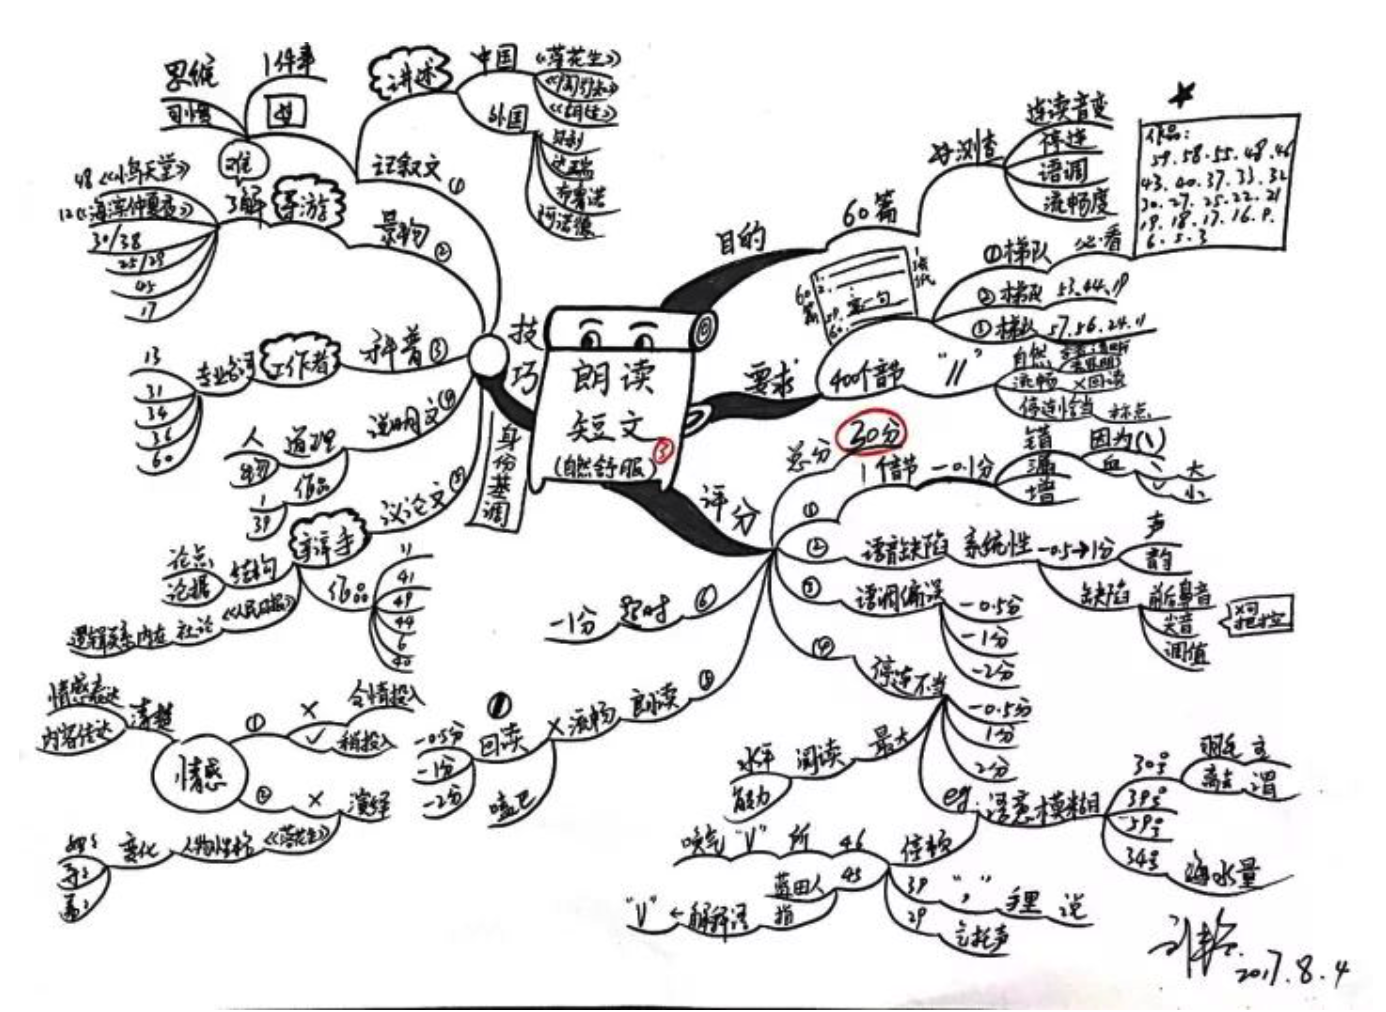 朗读
短文
(自然舒服)
③
目的
60篇
连读音变
停连
语调
流畅度
作品:
59.58.55.48.46
43.40.37.33.32
30.27.25.22.21
19.18.17.16.9.
6.5.3
要求
①梯队 必看
②梯队 53.44.19
③梯队 57.56.24.11
400个音节 "//"
自然
流畅 ×回读
停连恰当 标点
评分
总分 30分
① 1个音节 -0.1分
错
漏
增
因为(\)
血
大
小
② 语音缺陷 系统性 -0.5→1分
声
韵
缺陷
前后鼻音
尖音
调值
③ 语调偏误
-0.5分
-1分
-2分
④ 停连不当
-0.5分
1分
2分
最大 阅读
水平
能力
eg. 语意模糊
30号
羽毛
39号
59号
34号
海水量
停顿
46 所 "V" 换气
45
蓝田人
指 解释语 ← "V"
39 "," 手里 说
29 乞托声
⑤ 朗读 流畅 ×
回读
-0.5分
-1分
-2分
嗑巴
⑥ 超时 -1分
技巧
身份基调
记叙文 ①
讲述
中国
《落花生》
外国
达瑞
布鲁诺
阿诺德
景物 ②
导游
了解
难
1件事
思维
习惯
48《小鸟天堂》
12《海滨仲夏夜》
30/38
25/29
45
17
科普 ③
工作者
专业名词
13
31
34
36
60
说明文 ④
道理
人
物
作品
1
39
议论文 ⑤
结构
论点
论据
《人民日报》
社论
内在
逻辑关系
作品
11
41
49
44
6
40
情感
清楚
情感表达
内容传达
①
× 全情投入
✓ 稍投入
②
× 演绎
《落花生》
人物性格
变化
刘
2017.8.4